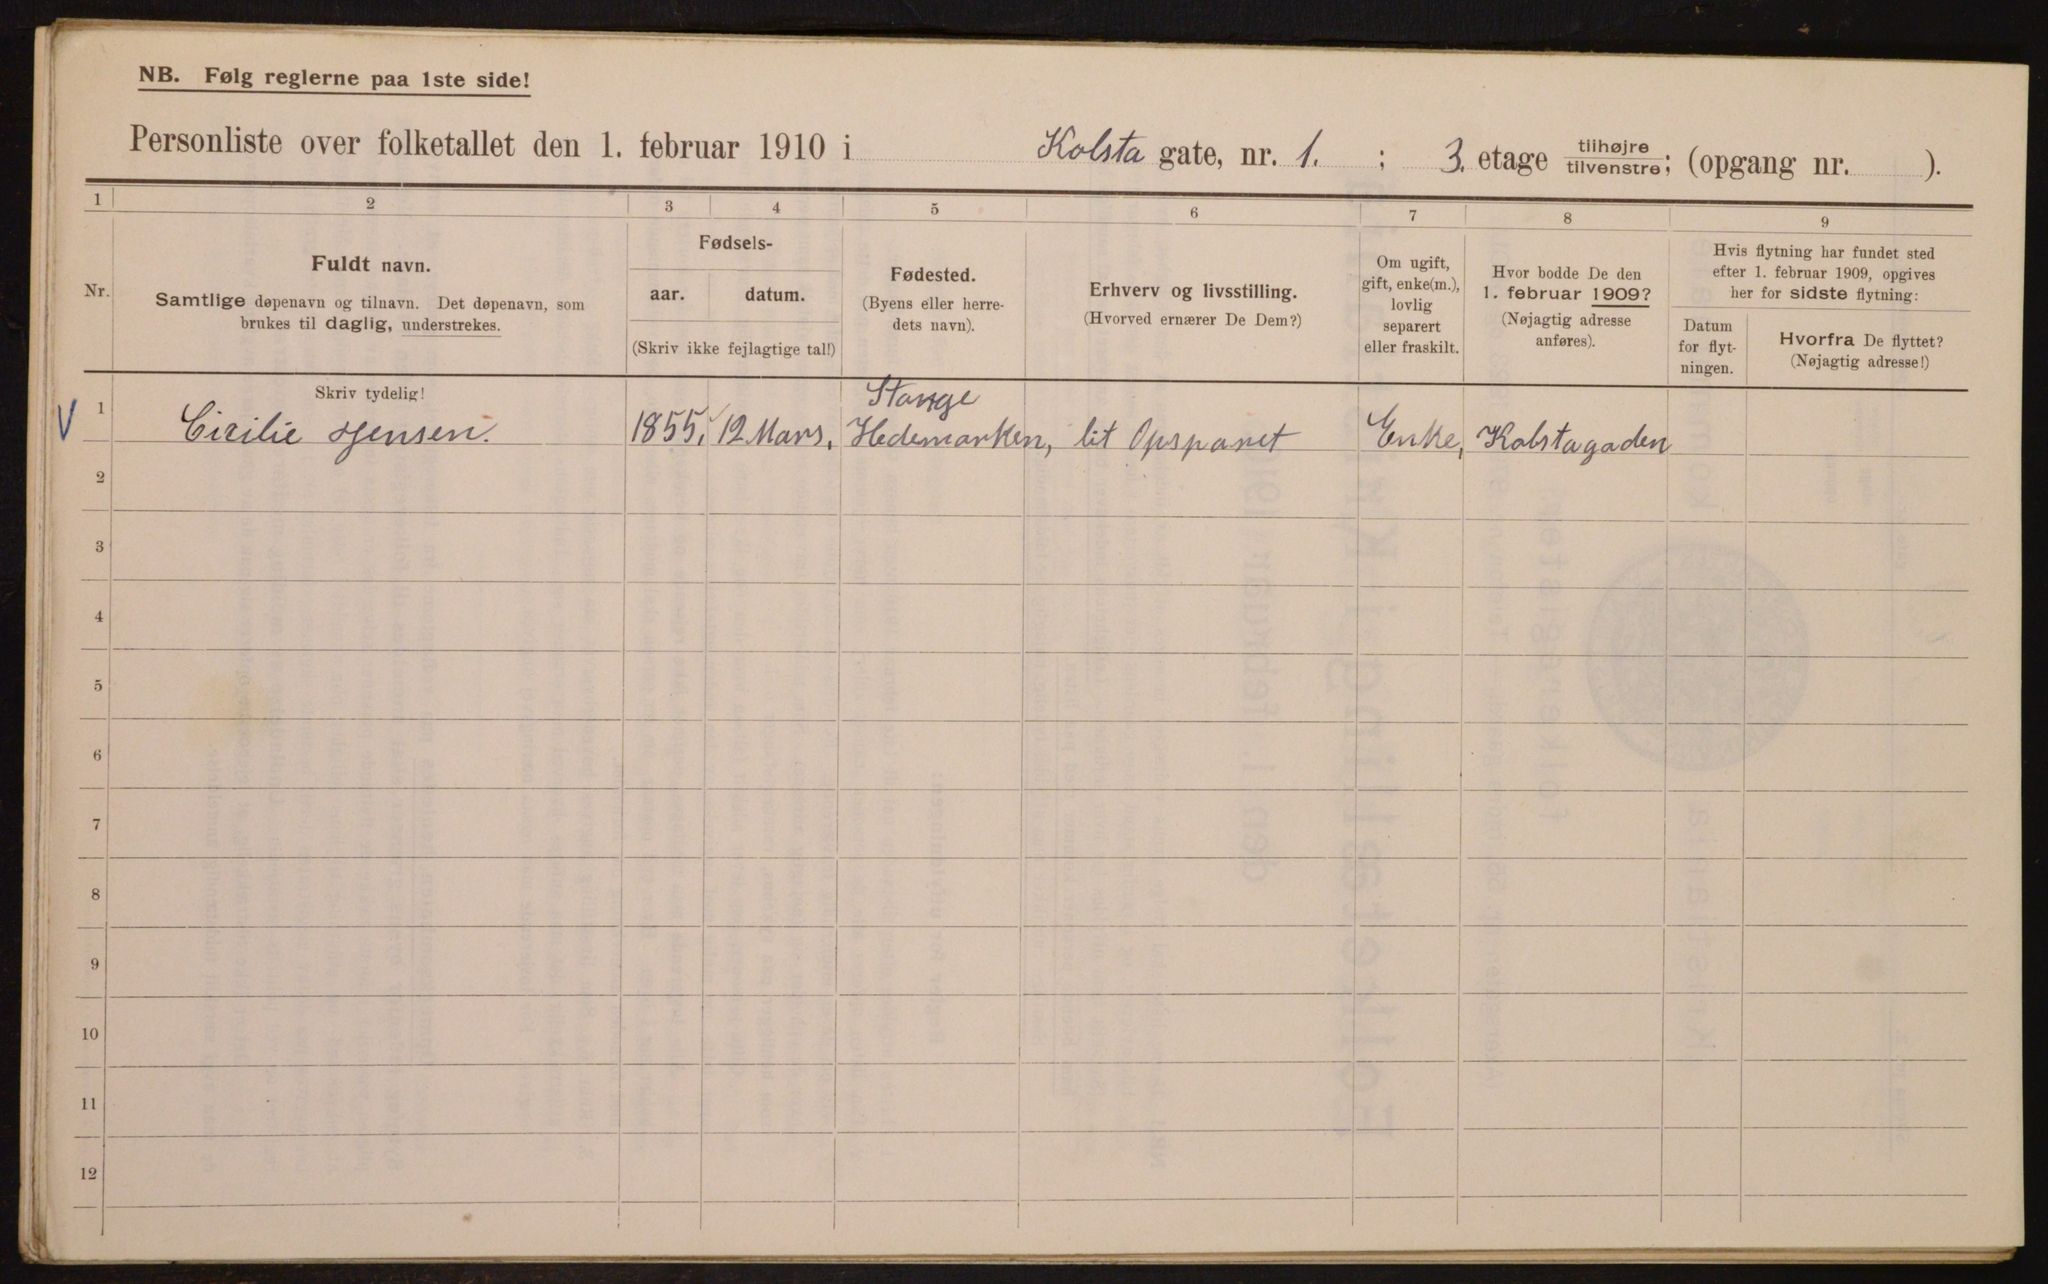 NB. Følg reglerne paa 1ste side!
Personliste over folketallet den 1. februar 1910 i Kolsta gate, nr. 1. ; 3. etage tilhøjre tilvenstre; (opgang nr. ).
1 2 3 4 5 6 7 8 9
Nr.
Fuldt navn.
Samtlige døpenavn og tilnavn. Det døpenavn, som
brukes til daglig, understrekes.
Skriv tydelig!
Fødsels-
aar. datum.
(Skriv ikke fejlagtige tal!)
Fødested.
(Byens eller herre-
dets navn).
Erhverv og livsstilling.
(Hvorved ernærer De Dem?)
Om ugift,
gift, enke(m.),
lovlig
separert
eller fraskilt.
Hvor bodde De den
1. februar 1909?
(Nøjagtig adresse
anføres).
Hvis flytning har fundet sted
efter 1. februar 1909, opgives
her for sidste flytning:
Datum
for flyt-
ningen.
Hvorfra De flyttet?
(Nøjagtig adresse!)
Stange
V 1 Cicilie Jensen. 1855, 12 Mars, Hedemarken, lit Opsparet Enke, Kolstagaden
2
3
4
5
6
7
8
9
10
11
12